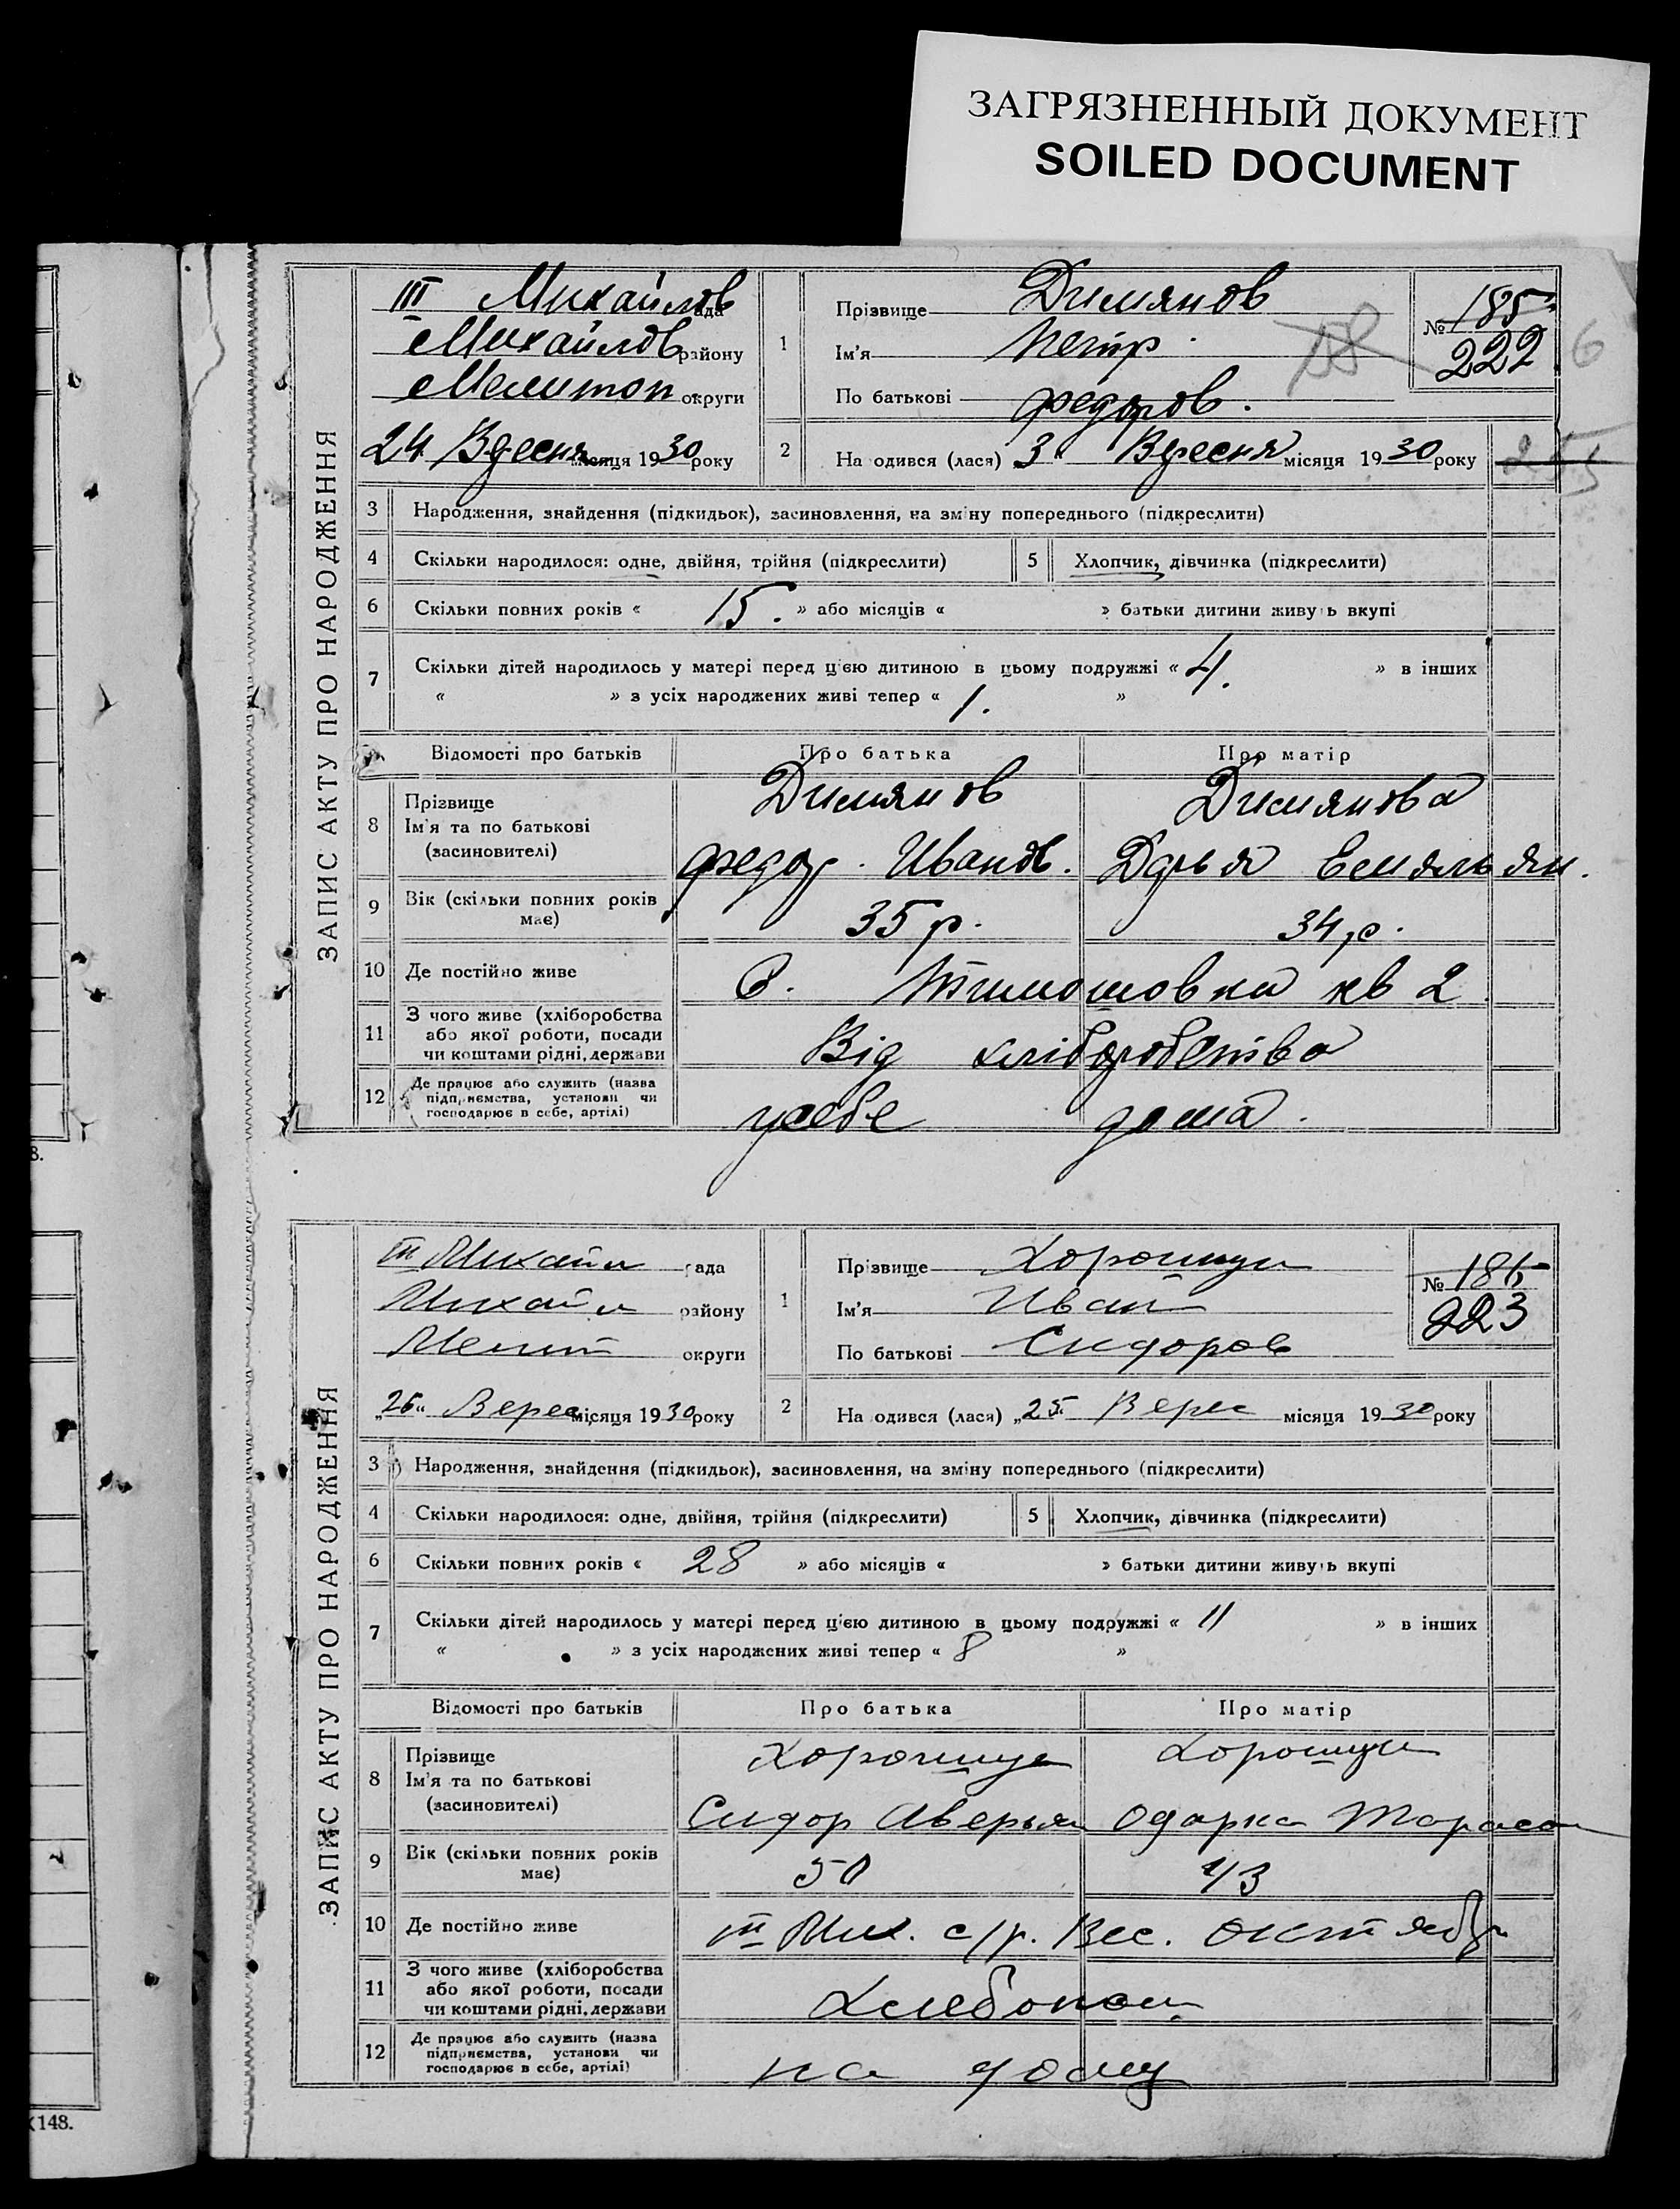 ЗАГРЯЗНЕННЫЙ ДОКУМЕНТ
SOILED DOCUMENT
ЗАПИС АКТУ ПРО НАРОДЖЕННЯ
III Михайлов рада
Михайлов району
Мелитоп округи
24 Вересня місяця 1930 року
1
Прізвище Димянов
Ім'я Петр
По батькові Федоров.
№ 185
222
6
2
На одився (лася) 3 Вересня місяця 1930 року
3 Народження, знайдення (підкидьок), засиновлення, на зміну попереднього (підкреслити)
4 Скільки народилося: одне, двійня, трійня (підкреслити) 5 Хлопчик, дівчинка (підкреслити)
6 Скільки повних років « 15. » або місяців « » батьки дитини живуть вкупі
7 Скільки дітей народилось у матері перед цією дитиною в цьому подружжі « 4. » в інших
« » з усіх народжених живі тепер « 1. »
Відомості про батьків Про батька Про матір
8 Прізвище
Ім'я та по батькові
(засиновителі)
Димянов
Федор. Иванов.
Димянова
Дарья Емяльян.
9 Вік (скільки повних років має) 35 р. 34 р.
10 Де постійно живе С. Тимошовка кв 2
11 З чого живе (хліборобства
або якої роботи, посади
чи коштами рідні, держави
Від хліборобства
12 Де працює або служить (назва
підприємства, установи чи
господарює в себе, артілі)
усебе дома.
8.
ЗАПИС АКТУ ПРО НАРОДЖЕННЯ
III Михайл рада
Михайл району
Мелит округи
„26" Верес місяця 1930 року
1
Прізвище Хорошун
Ім'я Иван
По батькові Сидоров
№ 186
223
2
На одився (лася) „25" Верес місяця 1930 року
3 Народження, знайдення (підкидьок), засиновлення, на зміну попереднього (підкреслити)
4 Скільки народилося: одне, двійня, трійня (підкреслити) 5 Хлопчик, дівчинка (підкреслити)
6 Скільки повних років « 28 » або місяців « » батьки дитини живуть вкупі
7 Скільки дітей народилось у матері перед цією дитиною в цьому подружжі « 11 » в інших
« » з усіх народжених живі тепер « 8 »
Відомості про батьків Про батька Про матір
8 Прізвище
Ім'я та по батькові
(засиновителі)
Хорошун
Сидор Аверьян
Хорошун
Одарка Тарасов
9 Вік (скільки повних років має) 50 43
10 Де постійно живе III Мих. с/р. Вес. Октябр
11 З чого живе (хліборобства
або якої роботи, посади
чи коштами рідні, держави
Хлебопаш
12 Де працює або служить (назва
підприємства, установи чи
господарює в себе, артілі)
на дому
148.